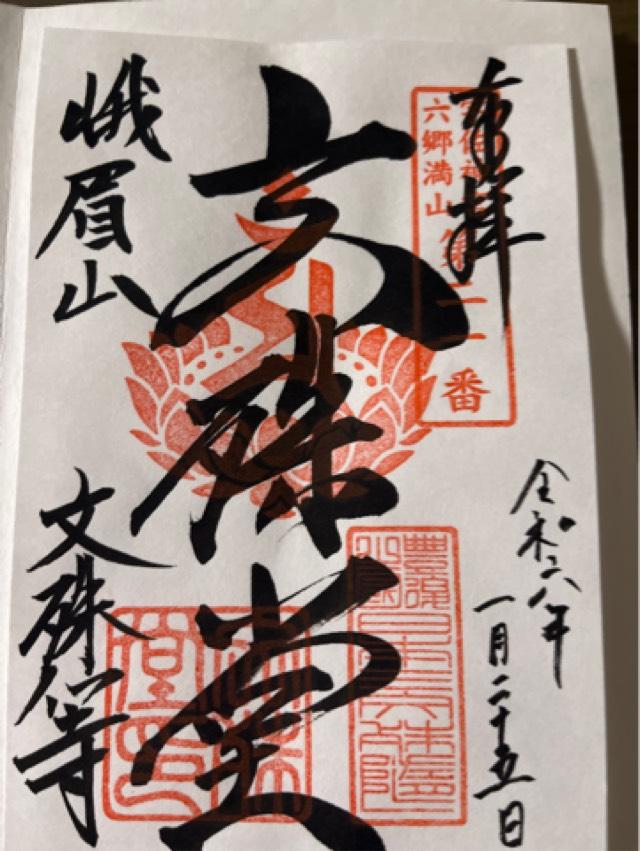 奉拝
宇佐神宮
六郷満山
第二二番
文殊堂
峨眉山
文殊仙寺
令和六年
一月二十五日